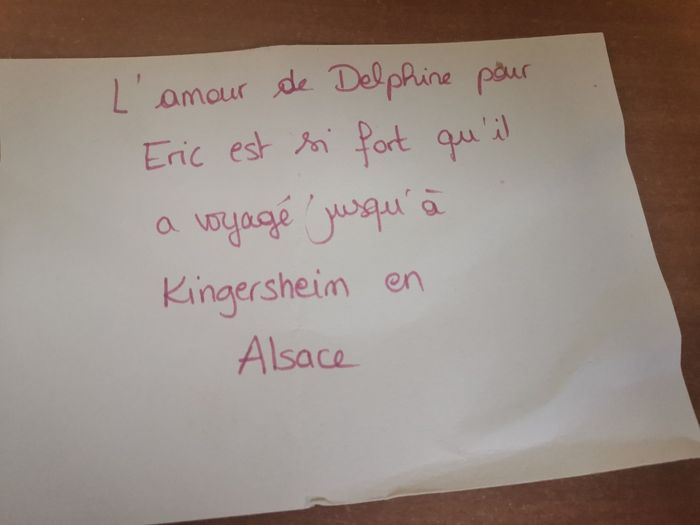 L'amour de Delphine pour
Eric est si fort qu'il
a voyagé jusqu'à
Kingersheim en
Alsace